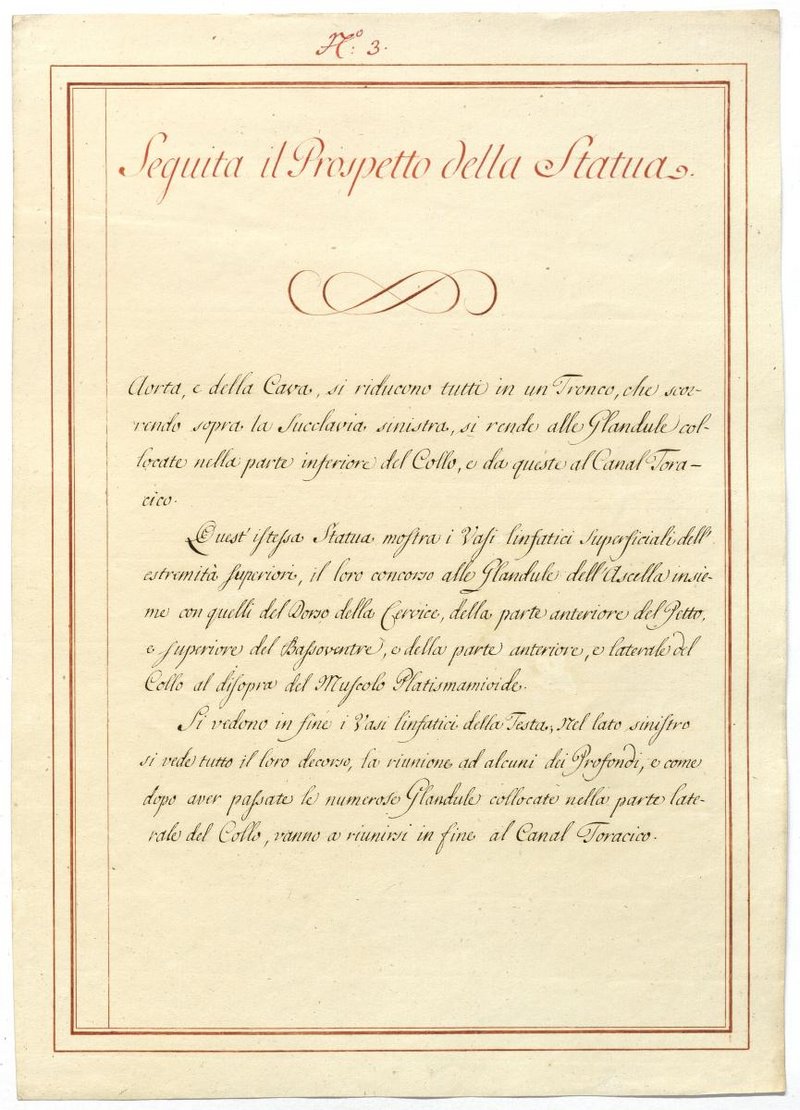 N.º 3.
Seguita il Prospetto della Statua.
Aorta, e della Cava, si riducono tutti in un Tronco, che scor-
rendo sopra la Succlavia sinistra, si rende alle Glandule col-
locate nella parte inferiore del Collo, e da queste al Canal Tora-
cico.
Quest' istessa Statua mostra i Vasi linfatici Superficiali dell'
estremità superiori, il loro concorso alle Glandule dell'Ascella insie-
me con quelli del Dorso della Cervice, della parte anteriore del Petto,
e superiore del Bassoventre, e della parte anteriore, e laterale del
Collo al disopra del Muscolo Platismamioide.
Si vedono in fine i Vasi linfatici della Testa, Nel lato sinistro
si vede tutto il loro decorso, la riunione ad alcuni dei Profondi, e come
dopo aver passate le numerose Glandule collocate nella parte late-
rale del Collo, vanno a riunirsi in fine al Canal Toracico.